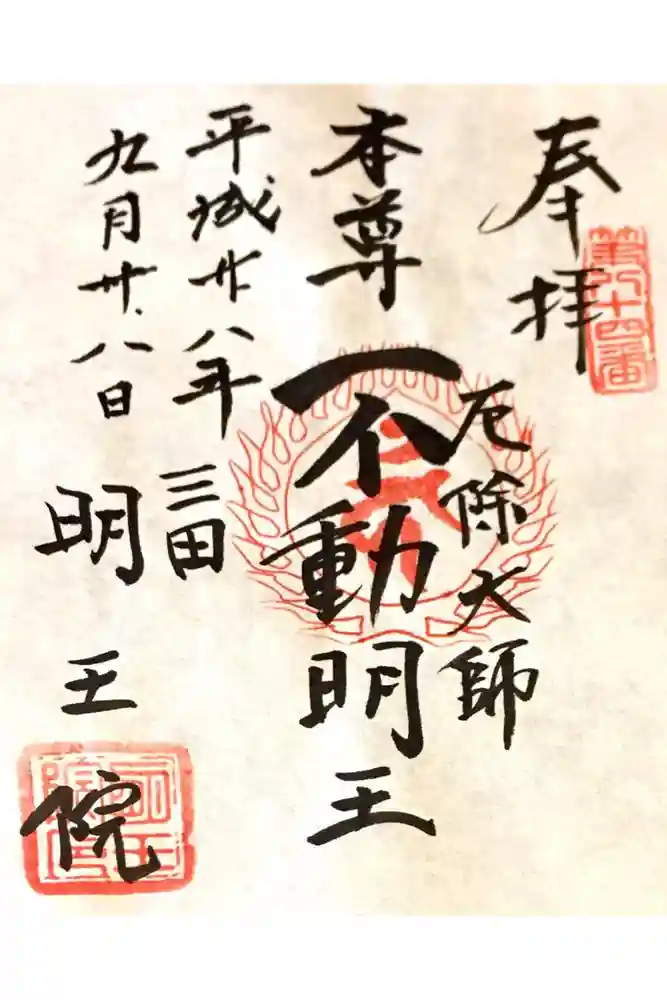 奉拝
第八十四番
厄除大師
本尊
不動明王
平成廿八年
九月廿八日
三田
明王院